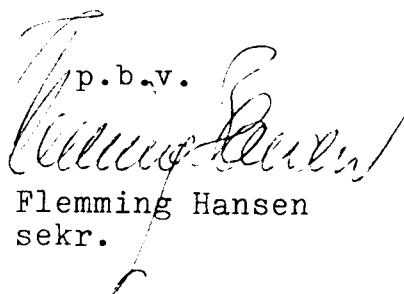 p.b.v.
Flemming Hansen
Flemming Hansen
sekr.